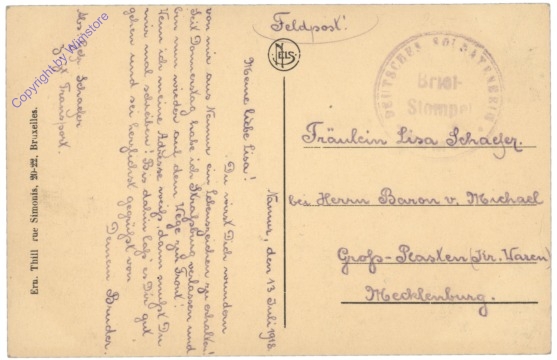 Feldpost!
NELS
DEUTSCHES SOLDATENHEIM
Brief-
Stempel
Fräulein Lisa Schaefer.
bei Herrn Baron v. Michael
Groß-Plasten (Kr. Waren)
Mecklenburg.
Namur, den 13 Juli 1918.
Meine liebe Lisa!
Du wirst Dich wundern
von mir aus Namur ein Lebenszeichen zu erhalten!
Seit Donnerstag habe ich Straßburg verlassen und
bin nun wieder auf dem Wege zur Front!
Wenn ich meine Adresse weiß, dann mußt Du
mir mal schreiben. Bis dahin laß es Dir gut
gehen und sei herzlichst gegrüßt von
Deinem Bruder.
Schaefer
Transport.
Ern. Thill rue Simonis, 20-22, Bruxelles.
Copyright by Winstore